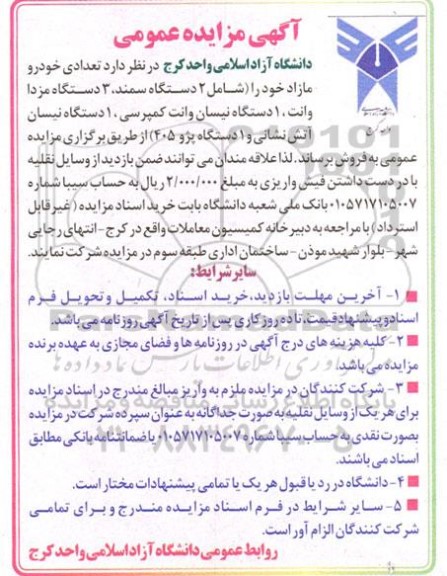 آگهی مزایده عمومی
دانشگاه آزاد اسلامی واحد کرج در نظر دارد تعدادی خودرو
مازاد خود را (شامل ۲ دستگاه سمند، ۳ دستگاه مزدا
وانت، ۱ دستگاه نیسان وانت کمپرسی، ۱ دستگاه نیسان
آتش نشانی و ۱ دستگاه پژو ۴۰۵) از طریق برگزاری مزایده
عمومی به فروش برساند. لذا علاقه مندان می توانند ضمن بازدید از وسایل نقلیه
با در دست داشتن فیش واریزی به مبلغ ۲/۰۰۰/۰۰۰ ریال به حساب سیبا شماره
۰۱۰۵۷۱۷۱۰۵۰۰۷ بانک ملی شعبه دانشگاه بابت خرید اسناد مزایده (غیر قابل
استرداد) با مراجعه به دبیرخانه کمیسیون معاملات واقع در کرج - انتهای رجایی
شهر - بلوار شهید موذن - ساختمان اداری طبقه سوم در مزایده شرکت نمایند.
سایر شرایط:
۱- آخرین مهلت بازدید، خرید اسناد، تکمیل و تحویل فرم
اسناد و پیشنهاد قیمت، تا ده روز کاری پس از تاریخ آگهی روزنامه می باشد.
۲- کلیه هزینه های درج آگهی در روزنامه ها و فضای مجازی به عهده برنده
مزایده می باشد.
۳- شرکت کنندگان در مزایده ملزم به واریز مبالغ مندرج در اسناد مزایده
برای هر یک از وسایل نقلیه به صورت جداگانه به عنوان سپرده شرکت در مزایده
بصورت نقدی به حساب سیبا شماره ۰۱۰۵۷۱۷۱۰۵۰۰۷ یا ضمانتنامه بانکی مطابق
اسناد می باشند.
۴- دانشگاه در رد یا قبول هر یک یا تمامی پیشنهادات مختار است.
۵- سایر شرایط در فرم اسناد مزایده مندرج و برای تمامی
شرکت کنندگان الزام آور است.
روابط عمومی دانشگاه آزاد اسلامی واحد کرج